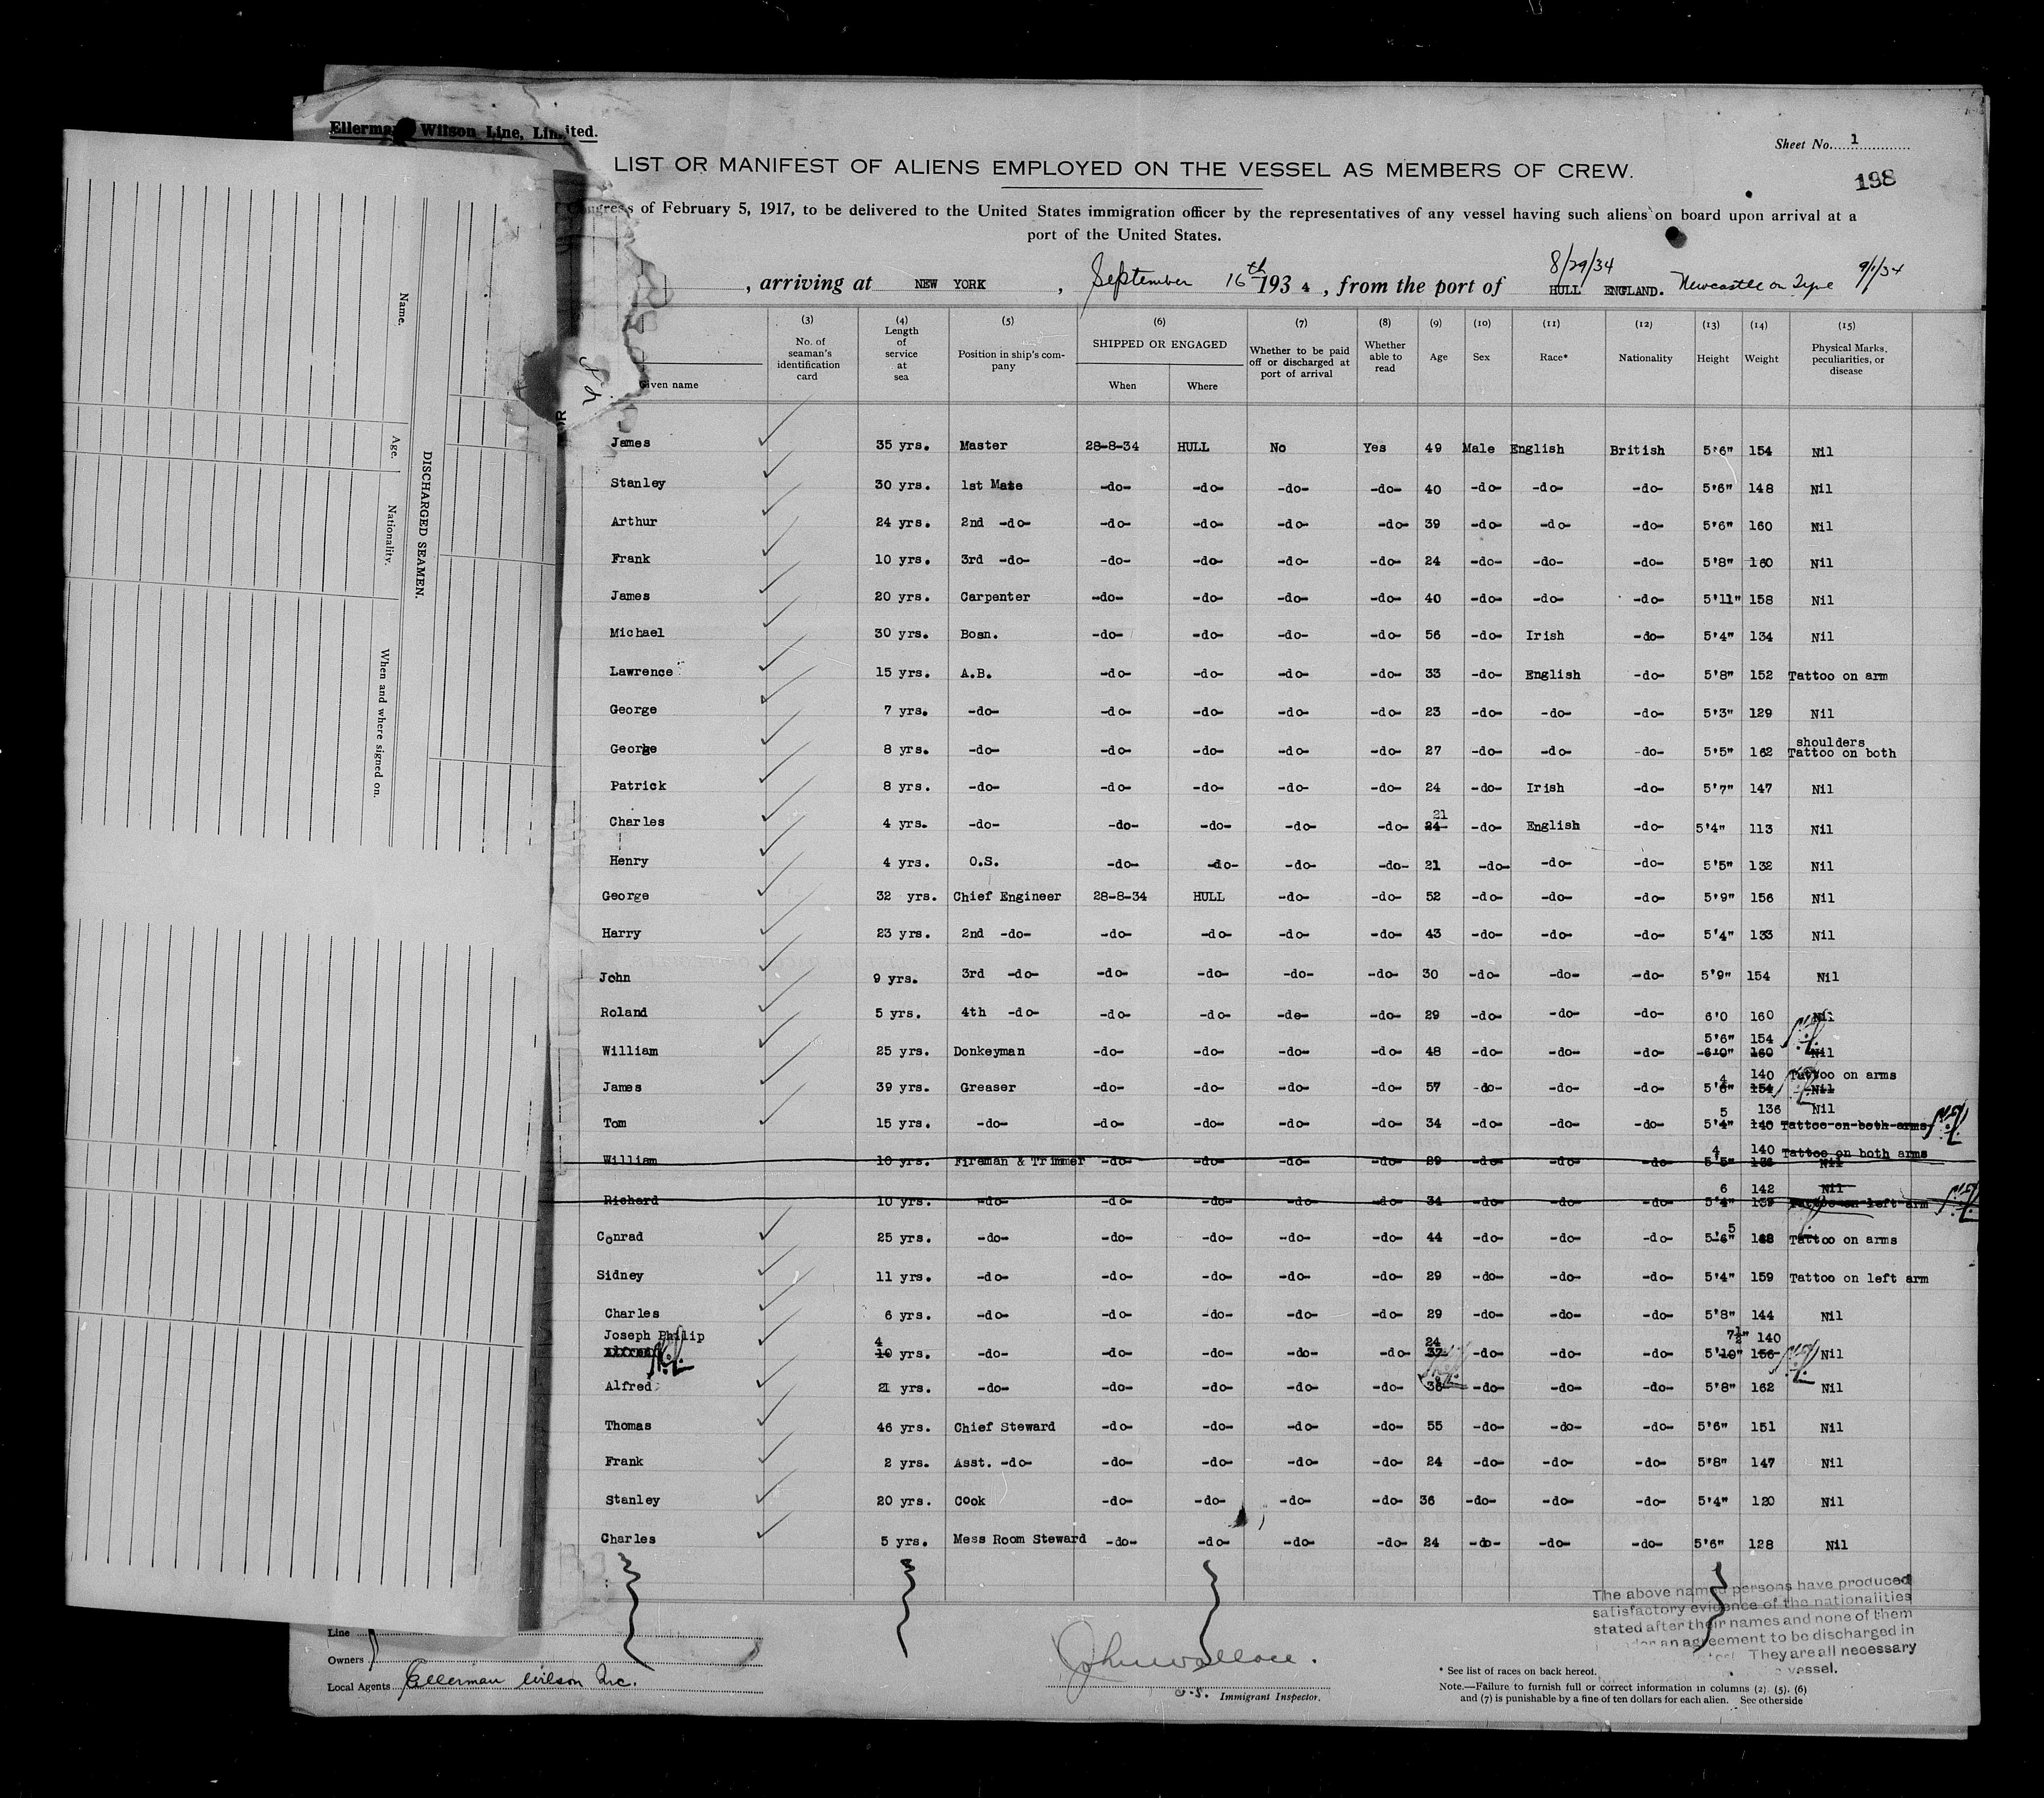 Ellerman Wilson Line, Limited.
Sheet No. 1
LIST OR MANIFEST OF ALIENS EMPLOYED ON THE VESSEL AS MEMBERS OF CREW.
198
Congress of February 5, 1917, to be delivered to the United States immigration officer by the representatives of any vessel having such aliens on board upon arrival at a
port of the United States.
, arriving at NEW YORK, September 16th 1934, from the port of HULL ENGLAND. 8/29/34 Newcastle on Tyne 9/1/34
Given name
(3) No. of seaman's identification card
(4) Length of service at sea
(5) Position in ship's company
(6) SHIPPED OR ENGAGED When Where
(7) Whether to be paid off or discharged at port of arrival
(8) Whether able to read
(9) Age
(10) Sex
(11) Race*
(12) Nationality
(13) Height
(14) Weight
(15) Physical Marks, peculiarities, or disease
James 35 yrs. Master 28-8-34 HULL No Yes 49 Male English British 5'6" 154 Nil
Stanley 30 yrs. 1st Mate -do- -do- -do- -do- 40 -do- -do- -do- 5'6" 148 Nil
Arthur 24 yrs. 2nd -do- -do- -do- -do- -do- 39 -do- -do- -do- 5'6" 160 Nil
Frank 10 yrs. 3rd -do- -do- -do- -do- -do- 24 -do- -do- -do- 5'8" 160 Nil
James 20 yrs. Carpenter -do- -do- -do- -do- 40 -do- -do- -do- 5'11" 158 Nil
Michael 30 yrs. Bosn. -do- -do- -do- -do- 56 -do- Irish -do- 5'4" 134 Nil
Lawrence 15 yrs. A.B. -do- -do- -do- -do- 33 -do- English -do- 5'8" 152 Tattoo on arm
George 7 yrs. -do- -do- -do- -do- -do- 23 -do- -do- -do- 5'3" 129 Nil
George 8 yrs. -do- -do- -do- -do- -do- 27 -do- -do- -do- 5'5" 162 shoulders Tattoo on both
Patrick 8 yrs. -do- -do- -do- -do- -do- 24 -do- Irish -do- 5'7" 147 Nil
Charles 4 yrs. -do- -do- -do- -do- -do- 21 24 -do- English -do- 5'4" 113 Nil
Henry 4 yrs. O.S. -do- -do- -do- -do- 21 -do- -do- -do- 5'5" 132 Nil
George 32 yrs. Chief Engineer 28-8-34 HULL -do- -do- 52 -do- -do- -do- 5'9" 156 Nil
Harry 23 yrs. 2nd -do- -do- -do- -do- -do- 43 -do- -do- -do- 5'4" 133 Nil
John 9 yrs. 3rd -do- -do- -do- -do- -do- 30 -do- -do- -do- 5'9" 154 Nil
Roland 5 yrs. 4th -do- -do- -do- -do- -do- 29 -do- -do- -do- 6'0 160 Nil
William 25 yrs. Donkeyman -do- -do- -do- -do- 48 -do- -do- -do- 5'6" 154 6'0" 160 Nil
James 39 yrs. Greaser -do- -do- -do- -do- 57 -do- -do- -do- 4 5'6" 140 154 Tattoo on arms Nil
Tom 15 yrs. -do- -do- -do- -do- -do- 34 -do- -do- -do- 5 5'4" 136 140 Nil Tattoo on both arms
William 10 yrs. Fireman & Trimmer -do- -do- -do- -do- 29 -do- -do- -do- 4 5'5" 140 136 Tattoo on both arms Nil
Richard 10 yrs. -do- -do- -do- -do- -do- 34 -do- -do- -do- 6 5'4" 142 139 Nil Tattoo on left arm
Conrad 25 yrs. -do- -do- -do- -do- -do- 44 -do- -do- -do- 5 5'6" Tattoo on arms
Sidney 11 yrs. -do- -do- -do- -do- -do- 29 -do- -do- -do- 5'4" 159 Tattoo on left arm
Charles 6 yrs. -do- -do- -do- -do- -do- 29 -do- -do- -do- 5'8" 144 Nil
Joseph Philip Alfred 4 10 yrs. -do- -do- -do- -do- -do- 24 37 -do- -do- -do- 7½" 5'10" 140 156 Nil
Alfred 21 yrs. -do- -do- -do- -do- -do- 36 -do- -do- -do- 5'8" 162 Nil
Thomas 46 yrs. Chief Steward -do- -do- -do- -do- 55 -do- -do- -do- 5'6" 151 Nil
Frank 2 yrs. Asst. -do- -do- -do- -do- -do- 24 -do- -do- -do- 5'8" 147 Nil
Stanley 20 yrs. Cook -do- -do- -do- -do- 36 -do- -do- -do- 5'4" 120 Nil
Charles 5 yrs. Mess Room Steward -do- -do- -do- -do- 24 -do- -do- -do- 5'6" 128 Nil
The above named persons have produced
satisfactory evidence of the nationalities
stated after their names and none of them
an agreement to be discharged in
They are all necessary
vessel.
Line
Owners
Local Agents Ellerman Wilson Inc.
John Wallace.
Immigrant Inspector.
* See list of races on back hereof.
Note.—Failure to furnish full or correct information in columns (2), (5), (6)
and (7) is punishable by a fine of ten dollars for each alien. See other side
DISCHARGED SEAMEN.
Name.
Age.
Nationality.
When and where signed on.